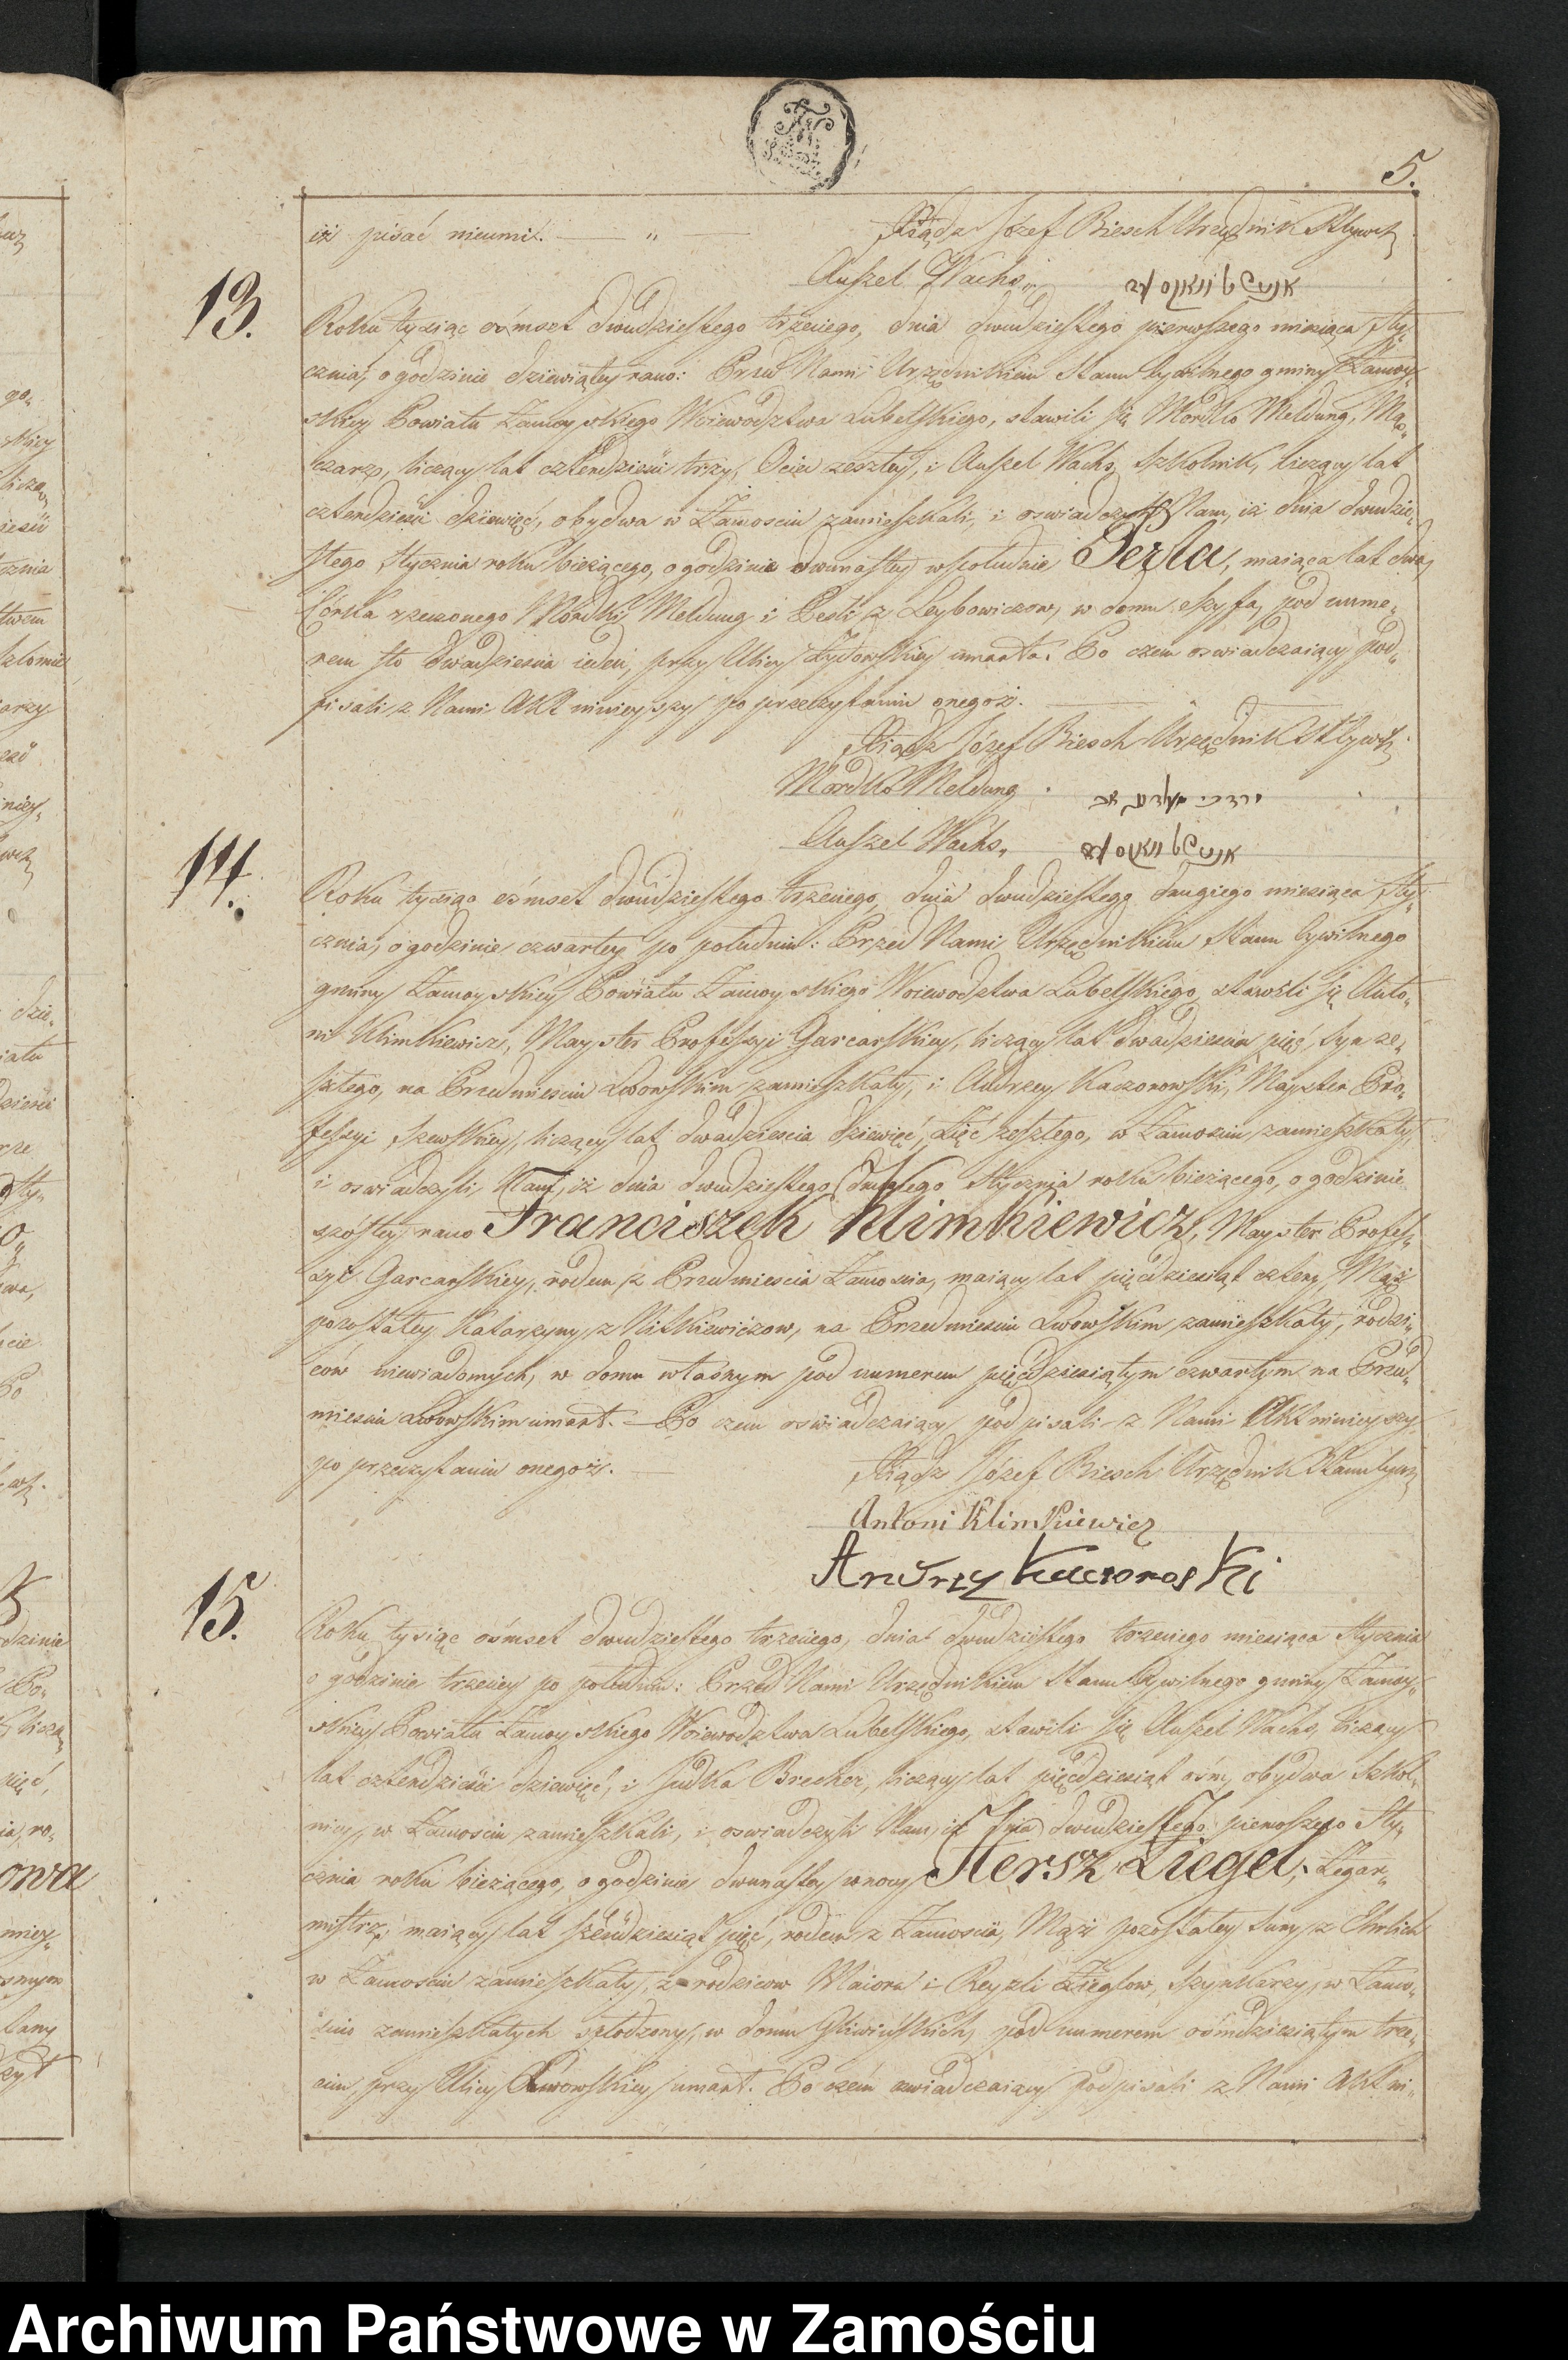 5.
iż pisać nieumié. — „ — Xiądz Józef Biesch Urzędnik St. Cywil.
Anszel Wachs
13.
Roku tysiąc ośmset dwudziestego trzeciego, dnia dwudziestego pierwszego miesiąca Sty-
cznia, o godzinie dziewiątey rano: Przed Nami Urzędnikiem Stanu Cywilnego gminy Zamoy-
skiey Powiatu Zamoyskiego Woiewodztwa Lubelskiego, stawili się Mordko Meldung, Mą-
czarz, liczący lat czterdzieści trzy, Ociec zeszłey, i Anszel Wachs Szkolnik, liczący lat
czterdzieści dziewięć, obydwa w Zamościu zamieszkali, i oswiadczyli Nam, iż dnia dwudzie-
stego Stycznia roku bieżącego, o godzinie dwunastey w południe Perla, maiąca lat dwa,
Córka rzeczonego Mordki Meldung i Pesli z Leybowiczow, w domu Szyfa, pod nume-
rem sto dwadzieścia ieden, przy Ulicy Żydowskiey umarła. Po czem oswiadczaiący pod-
pisali z Nami Akt ninieyszy po przeczytaniu onegoż.
Xiądz Józef Biesch Urzędnik St. Cywil.
Mordko Meldung
Anszel Wachs
14.
Roku tysiąc ośmset dwudziestego trzeciego, dnia dwudziestego drugiego miesiąca Sty-
cznia, o godzinie czwartey po południu: Przed Nami Urzędnikiem Stanu Cywilnego
gminy Zamoyskiey Powiatu Zamoyskiego Woiewodztwa Lubelskiego, stawili się Anto-
ni Klimkiewicz, Mayster Professyi Garcarskiey, liczący lat dwadzieścia pięć, Syn ze-
szłego, na Przedmieściu Lwowskim zamieszkały, i Andrzey Kaczorowski, Mayster Pro-
fessyi Szewskiey, liczący lat dwadzieścia dziewięć, Zięć zeszłego, w Zamościu zamieszkały,
i oswiadczyli Nam, iż dnia dwudziestego drugiego Stycznia roku bieżącego, o godzinie
szóstey rano Franciszek Klimkiewicz, Mayster Profes-
syi Garcarskiey, rodem z Przedmieścia Zamościa, maiący lat pięćdziesiąt cztery, Mąż
pozostałey Katarzyny z Nitkiewiczow, na Przedmieściu Lwowskim zamieszkały, rodzi-
ców niewiadomych, w domu własnym pod numerem pięćdziesiątym czwartym na Przed-
mieściu Lwowskim umarł. — Po czem oswiadczaiący podpisali z Nami Akt ninieyszy
po przeczytaniu onegoż. — Xiądz Józef Biesch Urzędnik Stanu Cywil.
Antoni Klimkiewicz
Andrzy Kaczoroski
15.
Roku tysiąc ośmset dwudziestego trzeciego, dnia dwudziestego trzeciego miesiąca Stycznia
o godzinie trzeciey po południu: Przed Nami Urzędnikiem Stanu Cywilnego gminy Zamoy-
skiey Powiatu Zamoyskiego Woiewodztwa Lubelskiego, stawili się Anszel Wachs, liczący
lat czterdzieści dziewięć, i Judka Brecher, liczący lat pięćdziesiąt ośm, obydwa Szkol-
nicy, w Zamościu zamieszkali, i oswiadczyli Nam, iż dnia dwudziestego pierwszego Sty-
cznia roku bieżącego, o godzinie dwunastey w nocy Hersz Ziegel, Zegar-
mistrz, maiący lat sześćdziesiąt pięć, rodem z Zamościa, Mąż pozostałey Sury z Ehrlich
w Zamościu zamieszkały, z rodziców Maiora i Reyzli Zieglow, Szynkarzy, w Zamo-
ściu zamieszkałych spłodzony, w domu Gliwińskich, pod numerem ośmdziesiątym trze-
cim, przy Ulicy Lwowskiey umarł. Po czem oswiadczaiący podpisali z Nami Akt ni-
Archiwum Państwowe w Zamościu